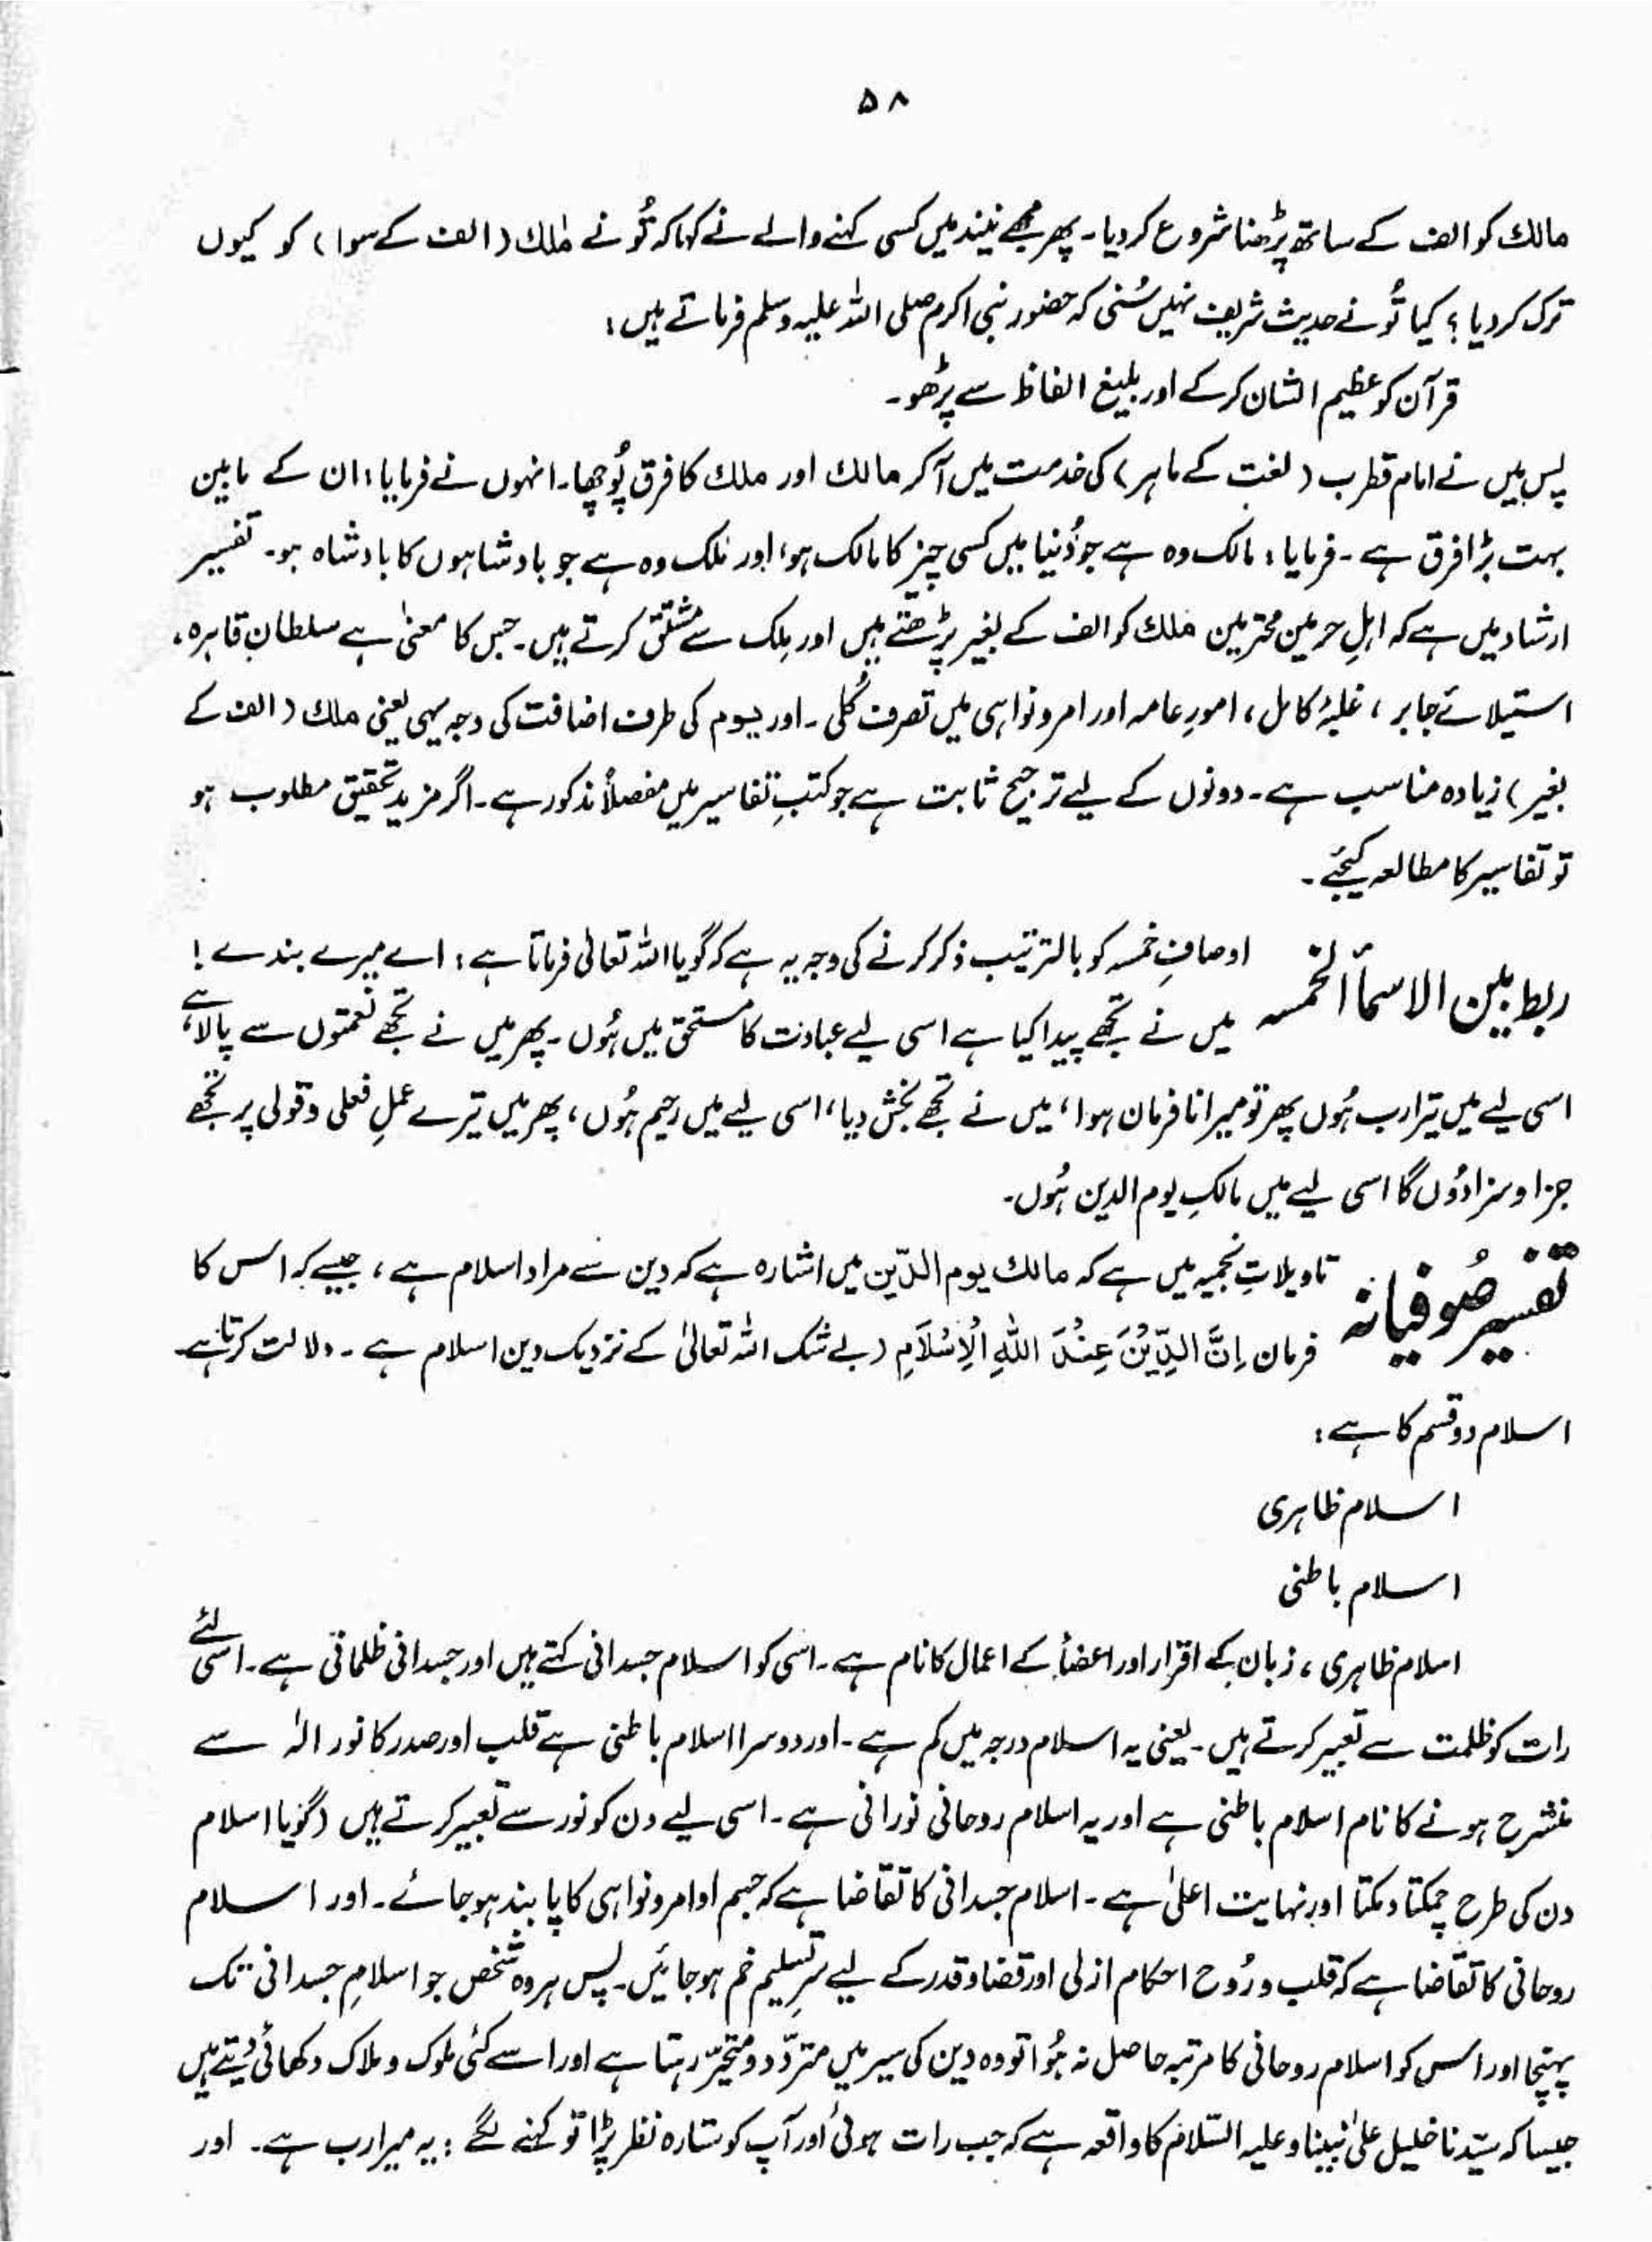 ۵۸
مالك کو الف کے ساتھ پڑھنا شروع کر دیا۔ پھر مجھے نیند میں کسی کہنے والے نے کہا کہ تُو نے مَلك (الف کے سوا) کو کیوں
ترک کر دیا؟ کیا تُو نے حدیث شریف نہیں سُنی کہ حضور نبی اکرم صلی اللہ علیہ وسلم فرماتے ہیں:
قرآن کو عظیم الشان کر کے اور بلیغ الفاظ سے پڑھو۔
پس میں نے امام قطرب (لغت کے ماہر) کی خدمت میں آکر مالك اور ملك کا فرق پُوچھا۔ انہوں نے فرمایا: ان کے مابین
بہت بڑا فرق ہے۔ فرمایا: مالک وہ ہے جو دُنیا میں کسی چیز کا مالک ہو، اور مَلک وہ ہے جو بادشاہوں کا بادشاہ ہو۔ تفسیر
ارشاد میں ہے کہ اہلِ حرمین محترمین مَلك کو الف کے بغیر پڑھتے ہیں اور مِلک سے مشتق کرتے ہیں۔ جس کا معنیٰ ہے سلطانِ قاہرہ،
استیلائے جابر، غلبۂ کامل، امورِ عامہ اور امر و نواہی میں تصرف کُلی۔ اور یوم کی طرف اضافت کی وجہ یہی یعنی ملك (الف کے
بغیر) زیادہ مناسب ہے۔ دونوں کے لیے ترجیح ثابت ہے جو کتبِ تفاسیر میں مفصلاً مذکور ہے۔ اگر مزید تحقیق مطلوب ہو
تو تفاسیر کا مطالعہ کیجئے۔
ربط بین الاسمأ الخمسہ اوصافِ خمسہ کو بالترتیب ذکر کرنے کی وجہ یہ ہے کہ گویا اللہ تعالیٰ فرماتا ہے: اے میرے بندے!
میں نے تجھے پیدا کیا ہے اسی لیے عبادت کا مستحق میں ہُوں۔ پھر میں نے تجھے نعمتوں سے پالا ہے،
اسی لیے میں تیرا رب ہُوں پھر تو میرا نافرمان ہوا، میں نے تجھے بخش دیا، اسی لیے میں رحیم ہُوں، پھر میں تیرے عملِ فعلی و قولی پر تجھے
جزا و سزا دُوں گا اسی لیے میں مالکِ یوم الدین ہُوں۔
تفسیر صُوفیانہ تاویلاتِ نجمیہ میں ہے کہ مالك یوم الدّین میں اشارہ ہے کہ دین سے مراد اسلام ہے، جیسے کہ اس کا
فرمان اِنَّ الدِّیْنَ عِنْدَ اللّٰهِ الْاِسْلَامِ (بے شک اللہ تعالیٰ کے نزدیک دین اسلام ہے۔ دلالت کرتا ہے۔
اسلام دو قسم کا ہے:
اسلام ظاہری
اسلام باطنی
اسلام ظاہری، زبان کے اقرار اور اعضأ کے اعمال کا نام ہے۔ اسی کو اسلام جسدانی کہتے ہیں اور جسدانی ظلماتی ہے۔ اسی لئے
رات کو ظلمت سے تعبیر کرتے ہیں۔ یعنی یہ اسلام درجہ میں کم ہے۔ اور دوسرا اسلام باطنی ہے قلب اور صدر کا نور الٰہ سے
منشرح ہونے کا نام اسلام باطنی ہے اور یہ اسلام روحانی نورانی ہے۔ اسی لیے دن کو نور سے تعبیر کرتے ہیں (گویا اسلام
دن کی طرح چمکتا دمکتا اور نہایت اعلیٰ ہے۔ اسلام جسدانی کا تقاضا ہے کہ جسم اوامر و نواہی کا پابند ہو جائے۔ اور اسلام
روحانی کا تقاضا ہے کہ قلب و رُوح احکام ازلی اور قضا و قدر کے لیے سرِ تسلیم خم ہو جائیں۔ پس ہر وہ شخص جو اسلامِ جسدانی تک
پہنچا اور اس کو اسلام روحانی کا مرتبہ حاصل نہ ہُوا تو وہ دین کی سیر میں متردّد و متحیّر رہتا ہے اور اسے کئی ملوک و ملاک دکھائی دیتے ہیں
جیسا کہ سیّدنا خلیل علیٰ نبینا و علیہ السّلام کا واقعہ ہے کہ جب رات ہوئی اور آپ کو ستارہ نظر پڑا تو کہنے لگے: یہ میرا رب ہے۔ اور